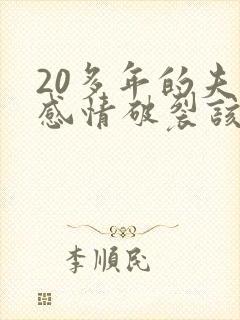 20多年的夫
感情破裂该
李順民